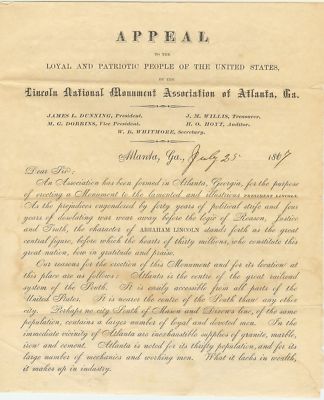 APPEAL
TO THE
LOYAL AND PATRIOTIC PEOPLE OF THE UNITED STATES,
BY THE
Lincoln National Monument Association of Atlanta, Ga.
JAMES L. DUNNING, President. J. M. WILLIS, Treasurer.
M. G. DOBBINS, Vice President. H. O. HOYT, Auditor.
W. B. WHITMORE, Secretary.
Atlanta, Ga., July 25 1867
Dear Sir:
An Association has been formed in Atlanta, Georgia, for the purpose
of erecting a Monument to the lamented and illustrious PRESIDENT LINCOLN.
As the prejudices engendered by forty years of political strife and four
years of desolating war wear away before the logic of Reason, Justice
and Truth, the character of ABRAHAM LINCOLN stands forth as the great
central figure, before which the hearts of thirty millions, who constitute this
great nation, bow in gratitude and praise.
Our reasons for the erection of this Monument and for its location at
this place are as follows: Atlanta is the centre of the great railroad
system of the South. It is easily accessible from all parts of the
United States. It is nearer the centre of the South than any other
city. Perhaps no city South of Mason and Dixon's line, of the same
population, contains a larger number of loyal and devoted men. In
the immediate vicinity of Atlanta are inexhaustible supplies of granite, marble,
iron and cement. Atlanta is noted for its thrifty population, and for its
large number of mechanics and working men. What it lacks in wealth,
it makes up in industry.